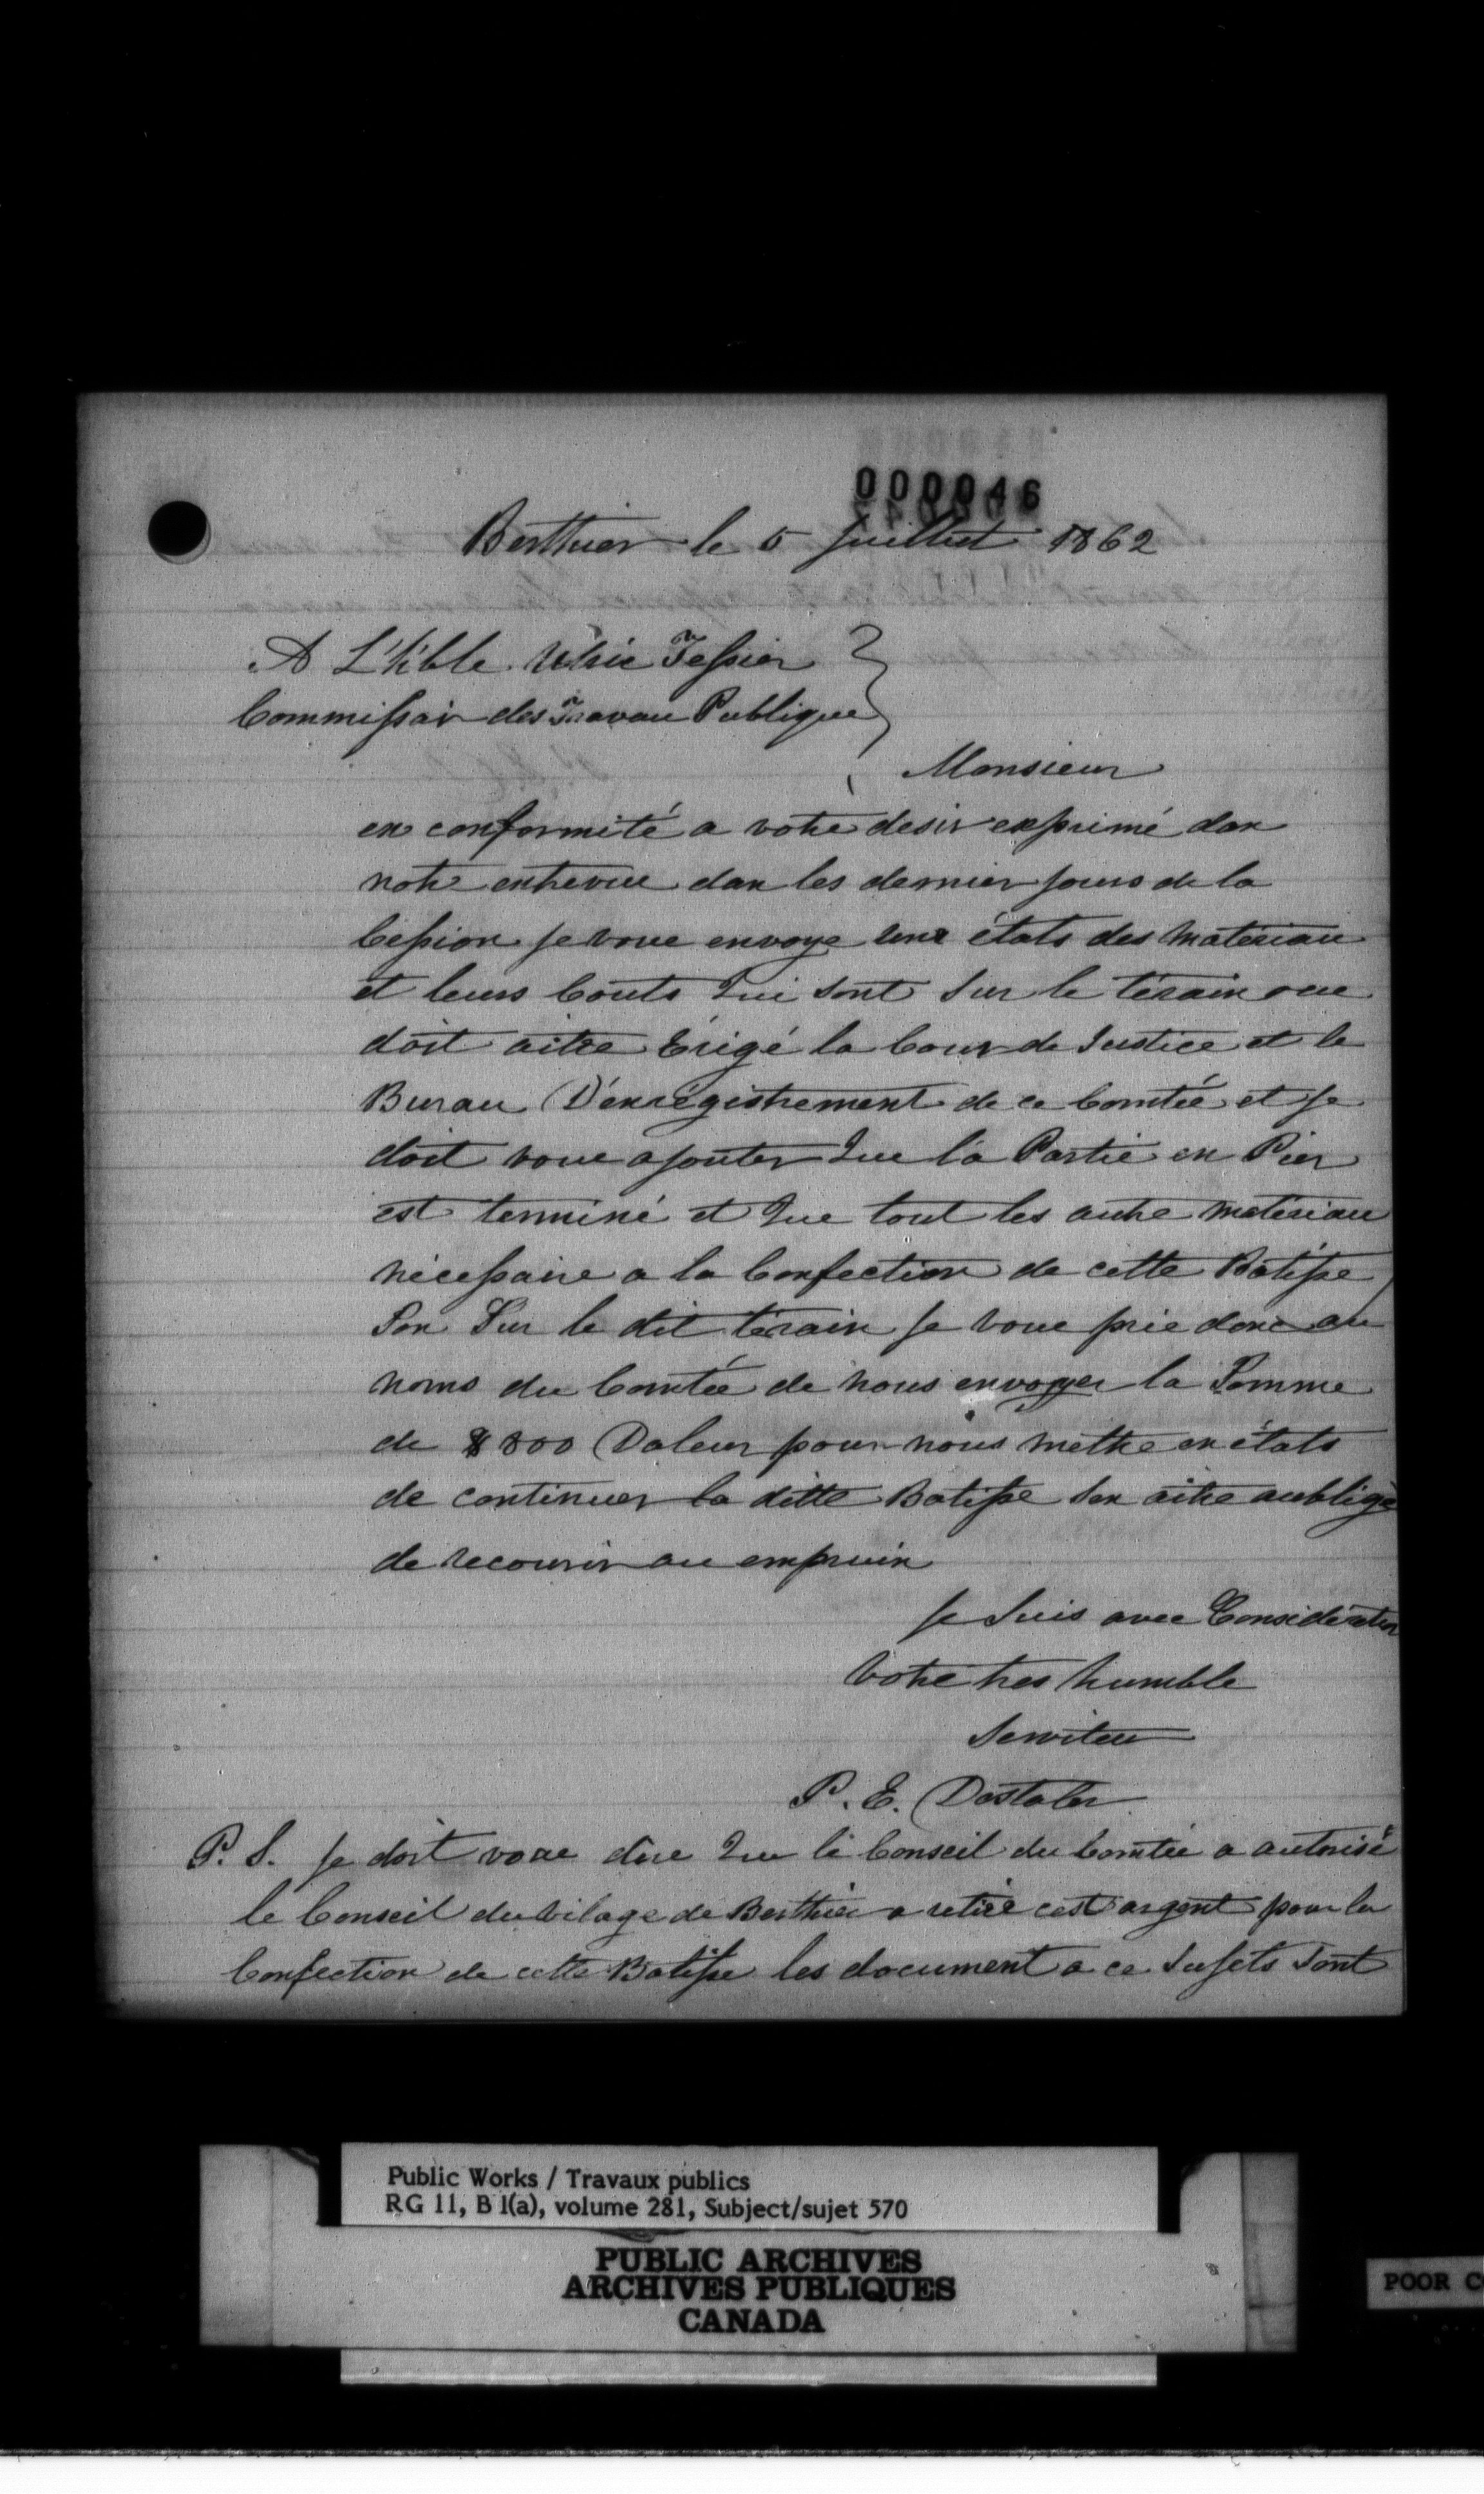 000046
Berthier le 5 Juillet 1862
A L'hble Ulric Tessier
Commissair des Travau Publique
Monsieur
en conformité a votre desir exprimé dan
notre entrevue dan les dernier jours de la
Cession je voue envoye une états des materiau
et leurs Couts Qui sont Sur le térain oue
doit aitre Érigé la Cour de Justice et le
Burau D'enregistrement de ce Comtée et je
doit voue ajouter Que la Partie en Pier
est terminé et Que tout les autre materiau
nécessaire a la Confection de cette Batisse
Son Sur le dit térain je voue prie donc au
noms du Comtée de nous envoyer la Somme
de $800 Daleur pour nous mettre en états
de continuer la ditte Batisse San aitre aubligé
de recourir au empruin
je Suis avec Consideration
Votre tres humble
Serviteu
P. E. Dostaler
P. S. je doit voue dire Que le Conseil du Comtée a autorisé
le Conseil du vilage de Berthier a retiré cest argent pour la
Confection de cette Batisse les document a ce Sujets Sont
Public Works / Travaux publics
RG 11, B 1(a), volume 281, Subject/sujet 570
PUBLIC ARCHIVES
ARCHIVES PUBLIQUES
CANADA
POOR